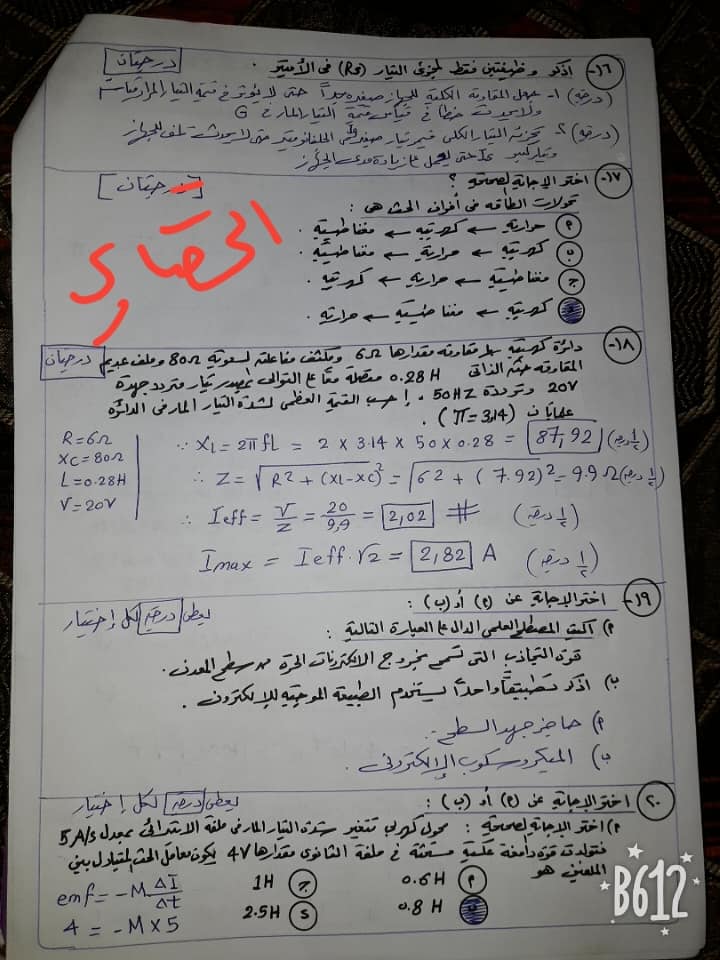 ١٦- اذكر وظيفتين فقط لمجزئ التيار (Rs) فى الأميتر . درجتان
(درجة) ١- جعل المقاومة الكلية للجهاز صغيرة جداً حتى لا يؤثر فى قيمة التيار المراد قياسه
ولا يحدث خطأ فى قياس قيمة التيار المار فى G
(درجة) ٢- تجزئة التيار الكلى فيمر تيار صغير فى الجلفانومتر حتى لا يحدث تلف للجهاز
وتيار كبير حتى يعمل على زيادة مدى الجهاز
١٧- اختر الإجابة الصحيحة ؟ [درجتان]
تحولات الطاقة فى أفران الحث هى :
الحصان
م حرارية ← كهربية ← مغناطيسية .
ب كهربية ← حرارية ← مغناطيسية .
ج مغناطيسية ← حرارية ← كهربية .
كهربية ← مغناطيسية ← حرارية
١٨- دائرة كهربية بها مقاومة مقدارها 6Ω ومكثف مفاعلته السعوية 80Ω وملف عديم درجتان
المقاومة حثه الذاتى 0.28 H متصلة معاً على التوالى بمصدر تيار متردد جهده
20V وتردده 50HZ ، احسب القيمة العظمى لشدة التيار المار فى الدائرة
علماً بأن (π=3,14) .
R=6Ω
XC=80Ω
L=0.28H
V=20V
∵ XL=2πfL = 2 x 3.14 x 50 x 0.28 = 87,92 (½ درجة)
∴ Z = √R² + (XL-XC)² = √62 + (7.92)² = 9.9 Ω (½ درجة)
∴ Ieff = V/Z = 20/9,9 = 2,02 # (½ درجة)
Imax = Ieff . √2 = 2,82 A (½ درجة)
١٩- اختر الإجابة عن (م) أو (ب) : يعطى درجة لكل إختيار
م) اكتب المصطلح العلمى الدال على العبارة التالية :
قوة التجاذب التى تسمح بخروج الالكترونات الحرة من سطح المعدن .
ب) اذكر تطبيقاً واحداً يستخدم الطبيعة الموجية للإلكترون .
م) حاجز جهد السطح .
ب) الميكروسكوب الإلكترونى .
٢٠- اختر الإجابة عن (م) أو (ب) : يعطى درجة لكل إختيار
م) اختر الإجابة الصحيحة : محول كهربى تتغير شدة التيار المار فى ملفه الابتدائى بمعدل 5A/s
فتولدت قوة دافعة عكسية مستحثة فى ملفه الثانوى مقدارها 4V يكون معامل الحث المتبادل بين
الملفين هو
م 0.6H
ج 1H
0.8 H
s 2.5H
emf = -M ΔI/Δt
4 = -M x 5
B612